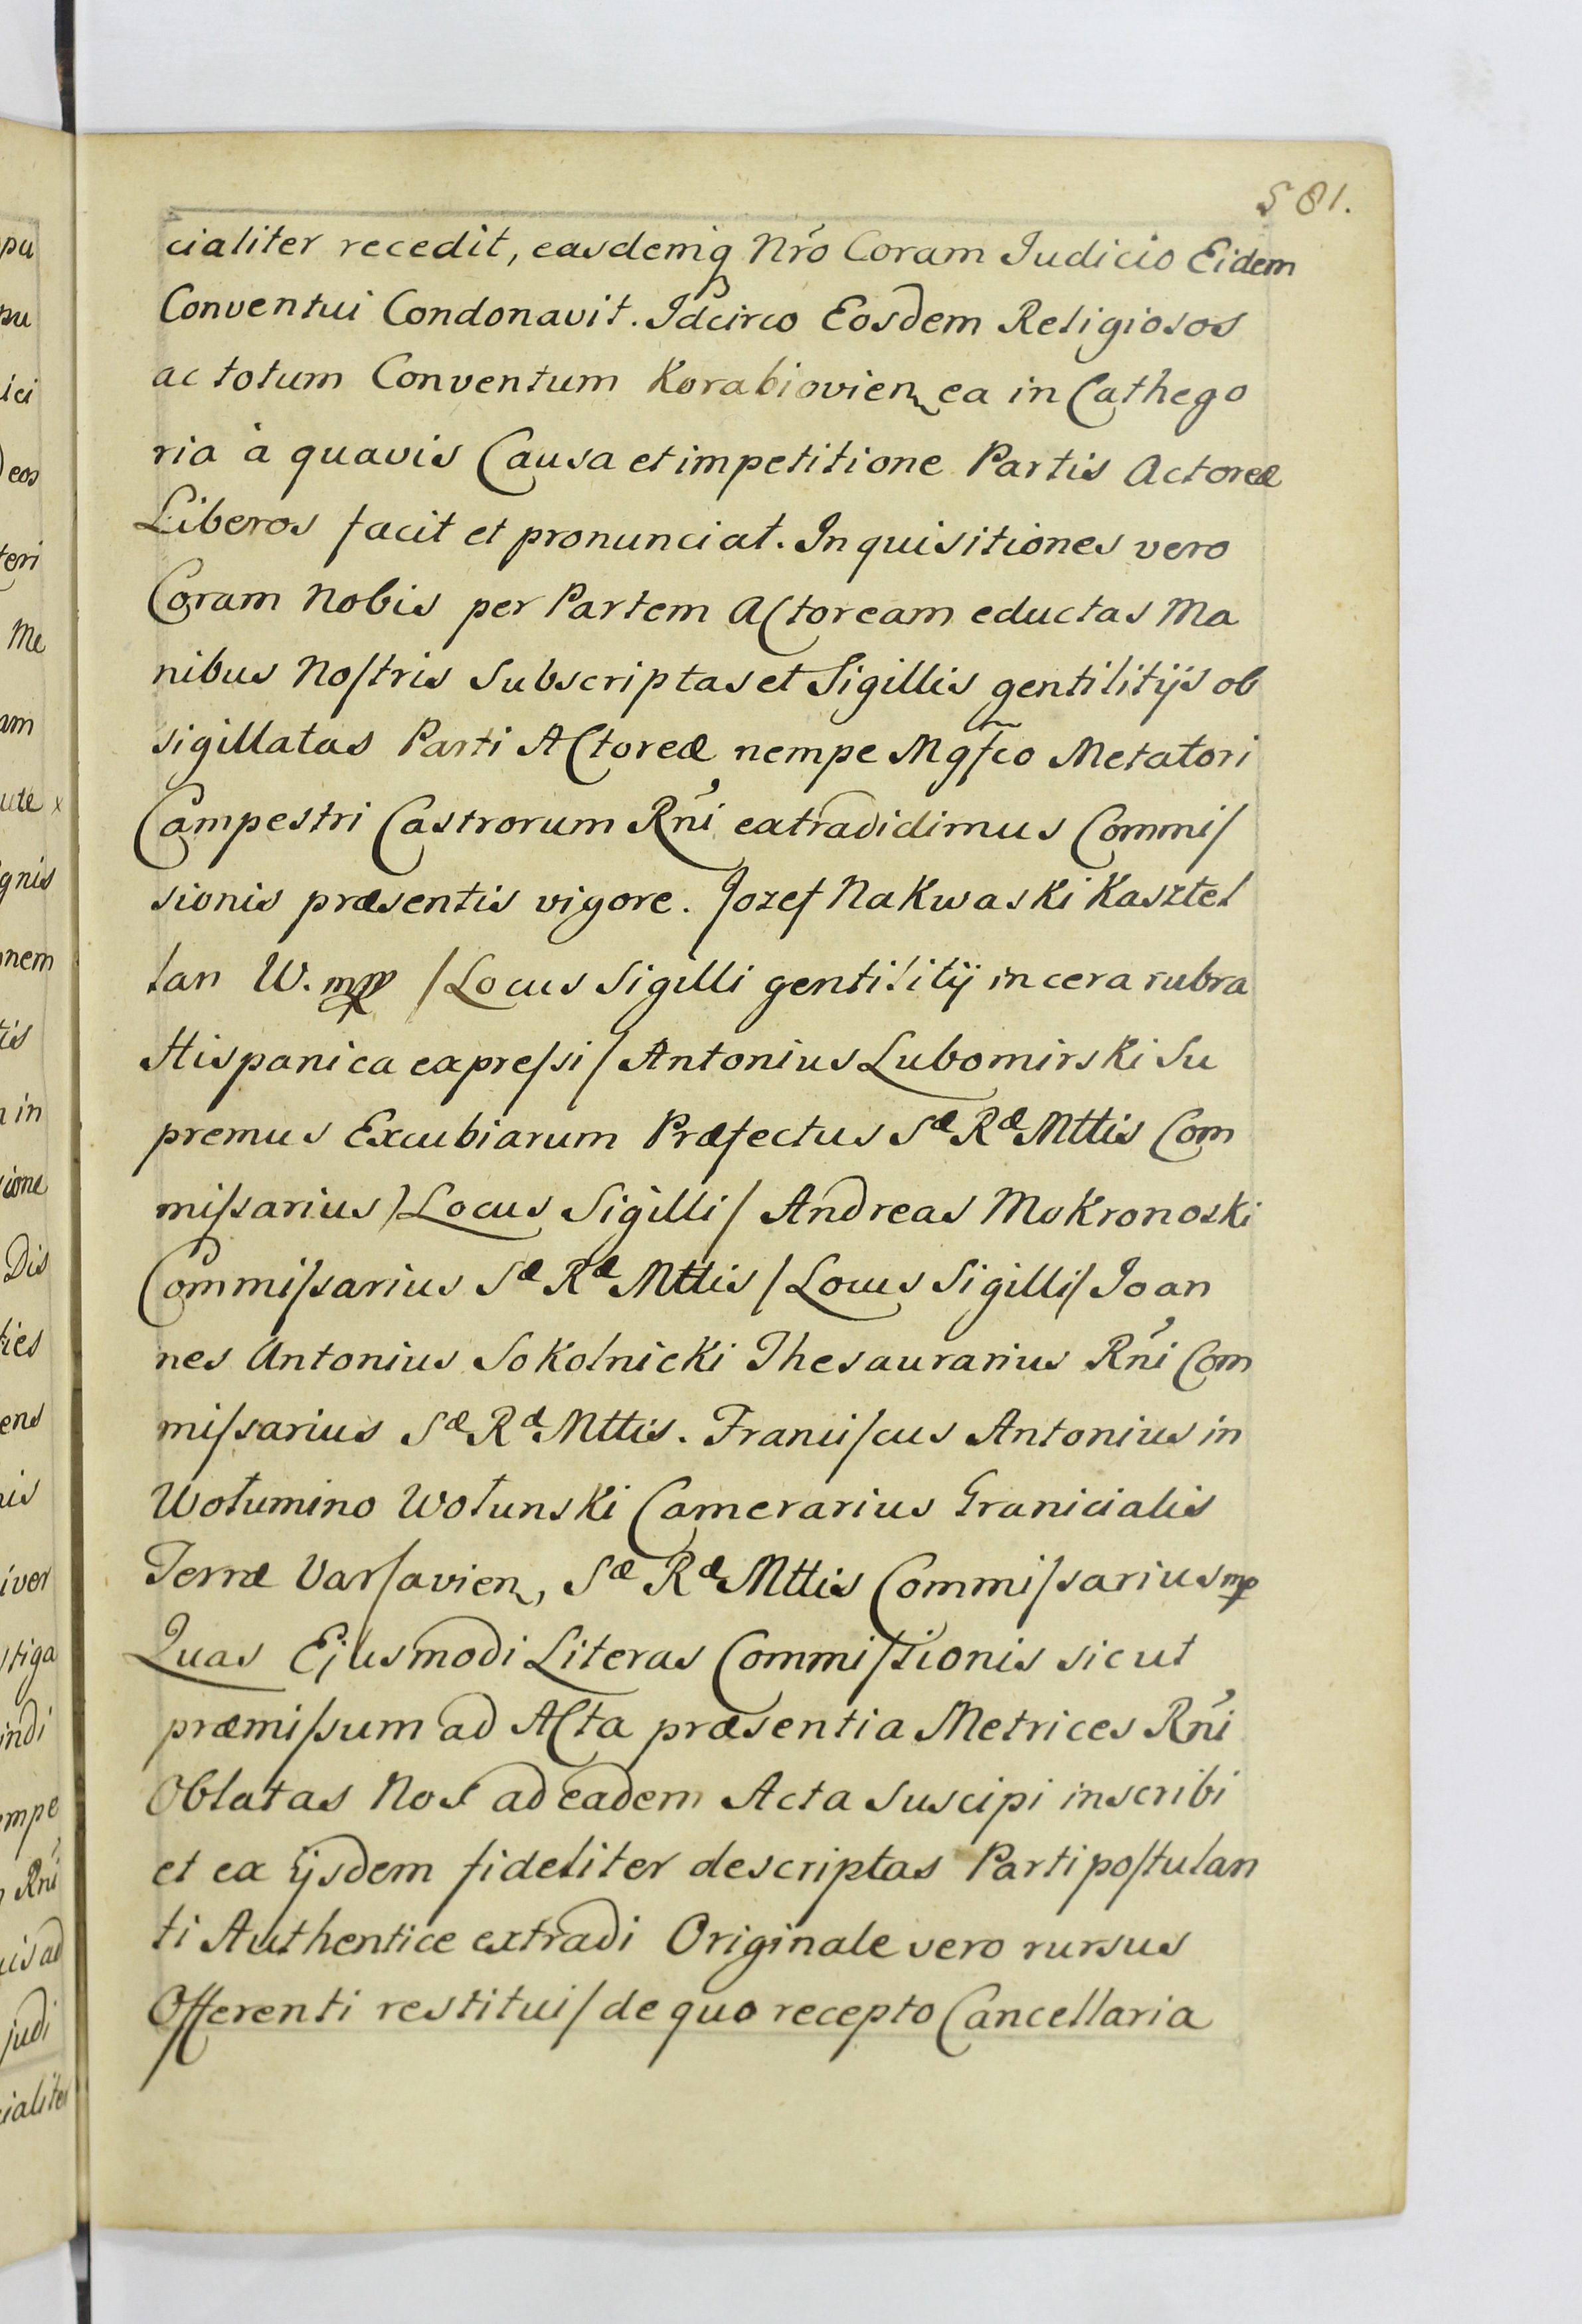 581.
cialiter recedit, easdemq₃ Nr̃o Coram Judicio Eidem
Conventui Condonavit. Idcirco Eosdem Religiosos
ac totum Conventum Korabiovien ea in Cathego
ria à quavis Causa et impetitione Partis Actoreæ
Liberos facit et pronunciat. Inquisitiones vero
Coram Nobis per Partem Actoream eductas Ma
nibus Noſtris Subscriptas et Sigillis gentilitijs ob
sigillatas Parti Actoreæ nempe Mgf̃co Metatori
Campestri Castrorum Rn̓i extradidimus Commiſ
sionis præsentis vigore. Jozef Nakwaski Kasztel
lan W. mpp /Locus Sigilli gentilitij in cera rubra
Hispanica expreſsi/ Antonius Lubomirski Su
premus Excubiarum Præfectus Sæ Ræ Mttis Com
miſsarius /Locus Sigilli/ Andreas Mokronoski
Commiſsarius Sæ Ræ Mttis /Locus Sigilli/ Joan
nes Antonius Sokolnicki Thesaurarius Rn̓i Com
miſsarius Sæ Ræ Mttis. Franciſcus Antonius in
Wołumino Wołunski Camerarius Granicialis
Terræ Varſavien, Sæ Ræ Mttis Commiſsarius mp
Quas Ejusmodi Literas Commiſsionis sicut
præmiſsum ad Acta præsentia Metrices Rn̓i
Oblatas Nos ad eadem Acta suscipi inscribi
et ex ijsdem fideliter descriptas Parti poſtulan
ti Authentice extradi Originale vero rursus
Offerenti restitui/ de quo recepto Cancellaria